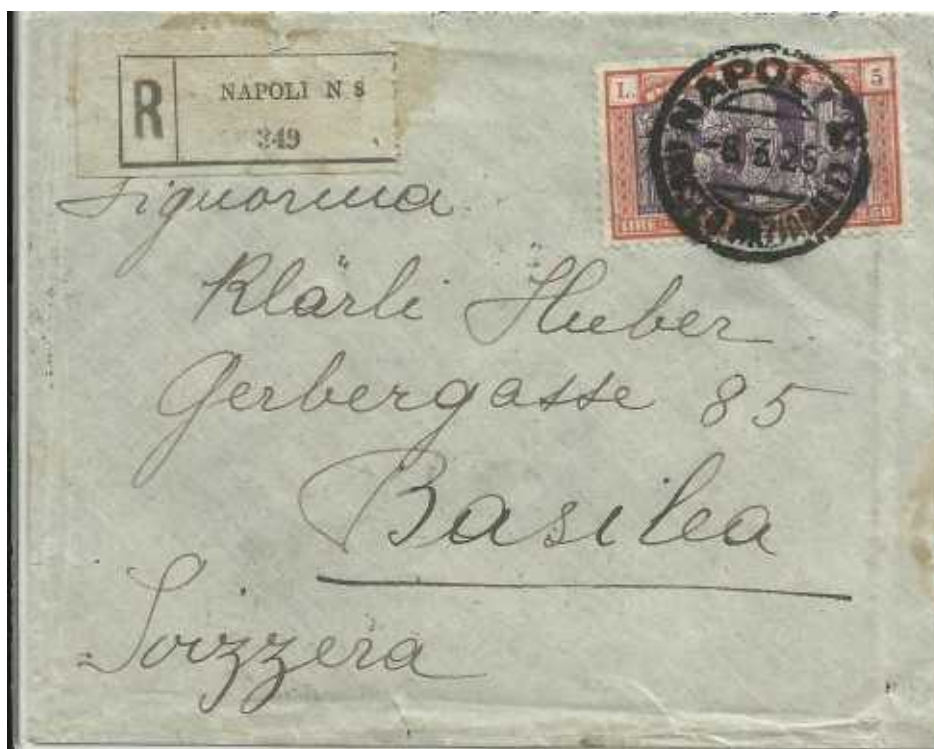 R
NAPOLI N 8
349
L. 5
NAPOLI
-6 3 25
LIRE 50
Signorina
Klärli Huber
Gerbergasse 85
Basilea
Svizzera